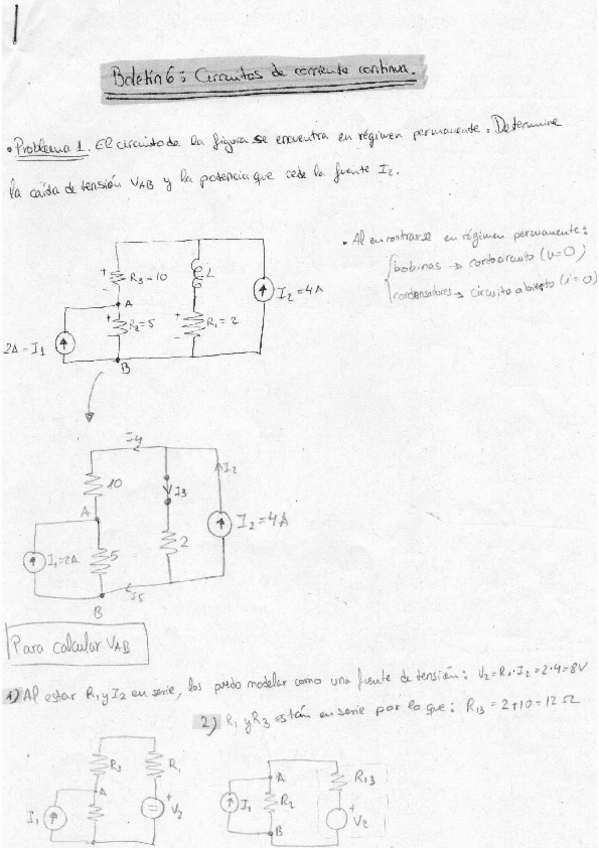 1
Boletín 6: Circuitos de corriente continua.
• Problema 1. El circuito de la figura se encuentra en régimen permanente. Determine
la caída de tensión VAB y la potencia que cede la fuente I2.
• Al encontrarse en régimen permanente:
bobinas → cortocircuito (u=0)
condensadores → circuito abierto (i=0)
+
-
R3=10
L
I2=4A
A
+
R2=5
+
-
R1=2
2A=I1
B
I4
10
I3
I2
A
I2=4A
I1=2A
5
2
B
I5
Para calcular VAB
1) Al estar R1 y I2 en serie, las puedo modelar como una fuente de tensión: V2=R1·I2=2·4=8V
2) R1 y R3 están en serie por lo que: R13=2+10=12Ω
R3
R1
A
I1
+
V2
A
R13
I1
R2
+
V2
B